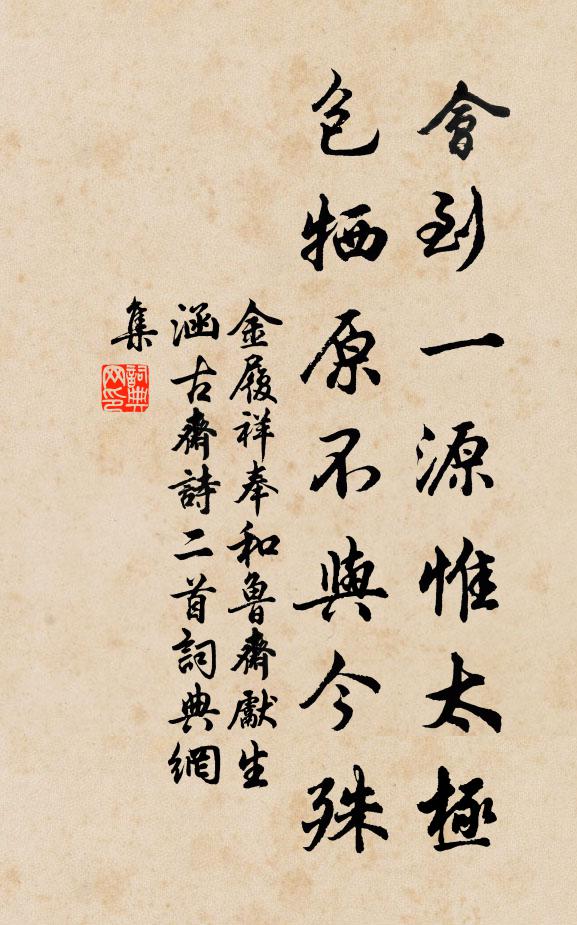 會到一源惟太極
包牺原不與今殊
金履祥奉和魯齋獻生
涵古齋詩二首詞典網
集
詞典网印